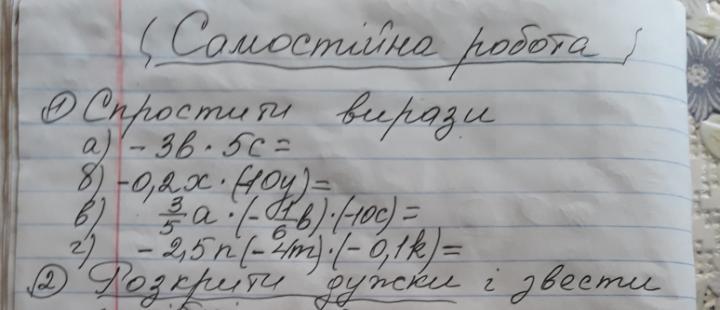 Самостійна робота
① Спростити вирази
а) - 3в · 5с =
б) -0,2х · (-10у) =
в) 3/5 а · (- 1/6 в) · (-10с) =
г) - 2,5n (- 4m) · (- 0,1k) =
② Розкрити дужки і звести